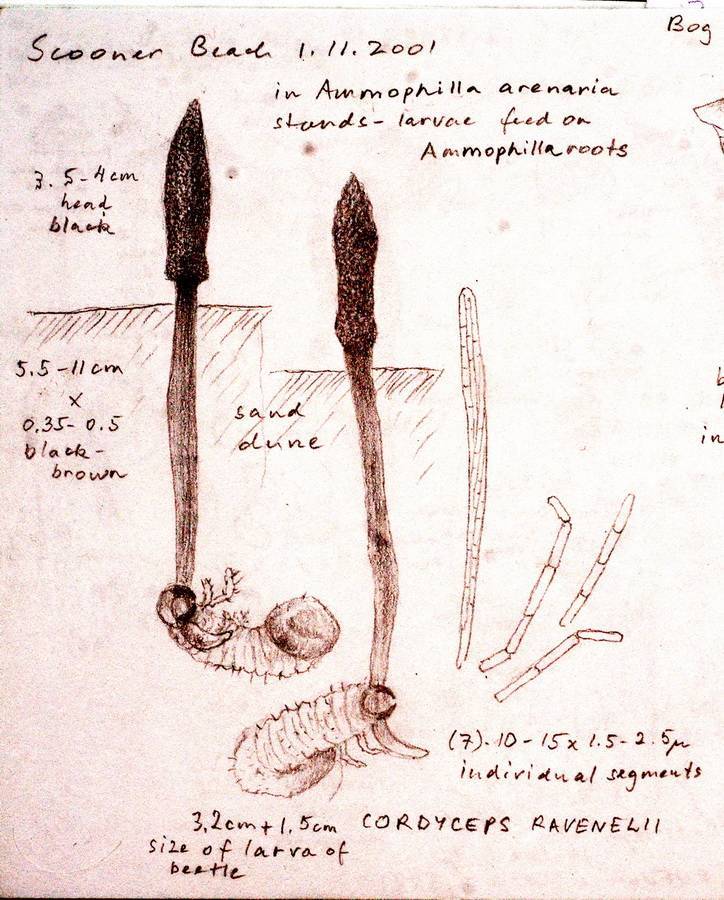 Bog
Scooner Beach 1.11.2001
in Ammophilla arenaria
stands - larvae feed on
Ammophilla roots
3.5-4cm
head
black
5.5-11cm
x
0.35-0.5
black-
brown
sand
dune
in
(7)-10-15x1.5-2.5µ
individual segments
3,2cm+1,5cm
size of larva of
beetle
CORDYCEPS RAVENELII